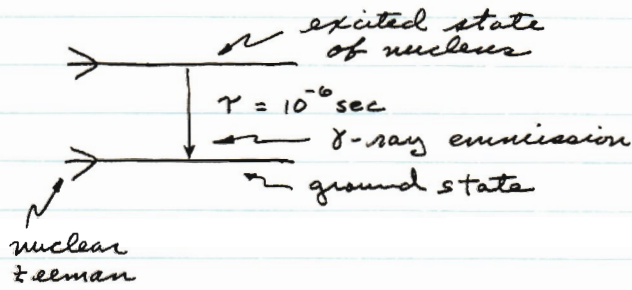 excited state
of nucleus
τ = 10⁻⁶ sec
γ-ray emmission
ground state
nuclear
zeeman